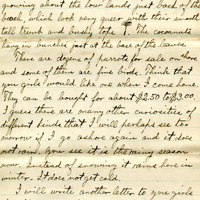 growing about the low lands just back of the
beach, which look very queer with their smooth
tall trunk and bushy tops. The cocoanuts
hang in bunches just at the base of the leaves.
There are dozens of parrots for sale on shore
and some of them are fine birds. Think that
you girls would like one when I come home.
They can be bought for about $2.50 to $3.00.
I guess there are many other curiosities of
different kinds that I will perhaps see to-
morrow if I go ashore again and it does
not rain. You see it is the rainy season
now. Instead of snowing it rains here in
winter. It does not get cold.
I will write another letter to you girls